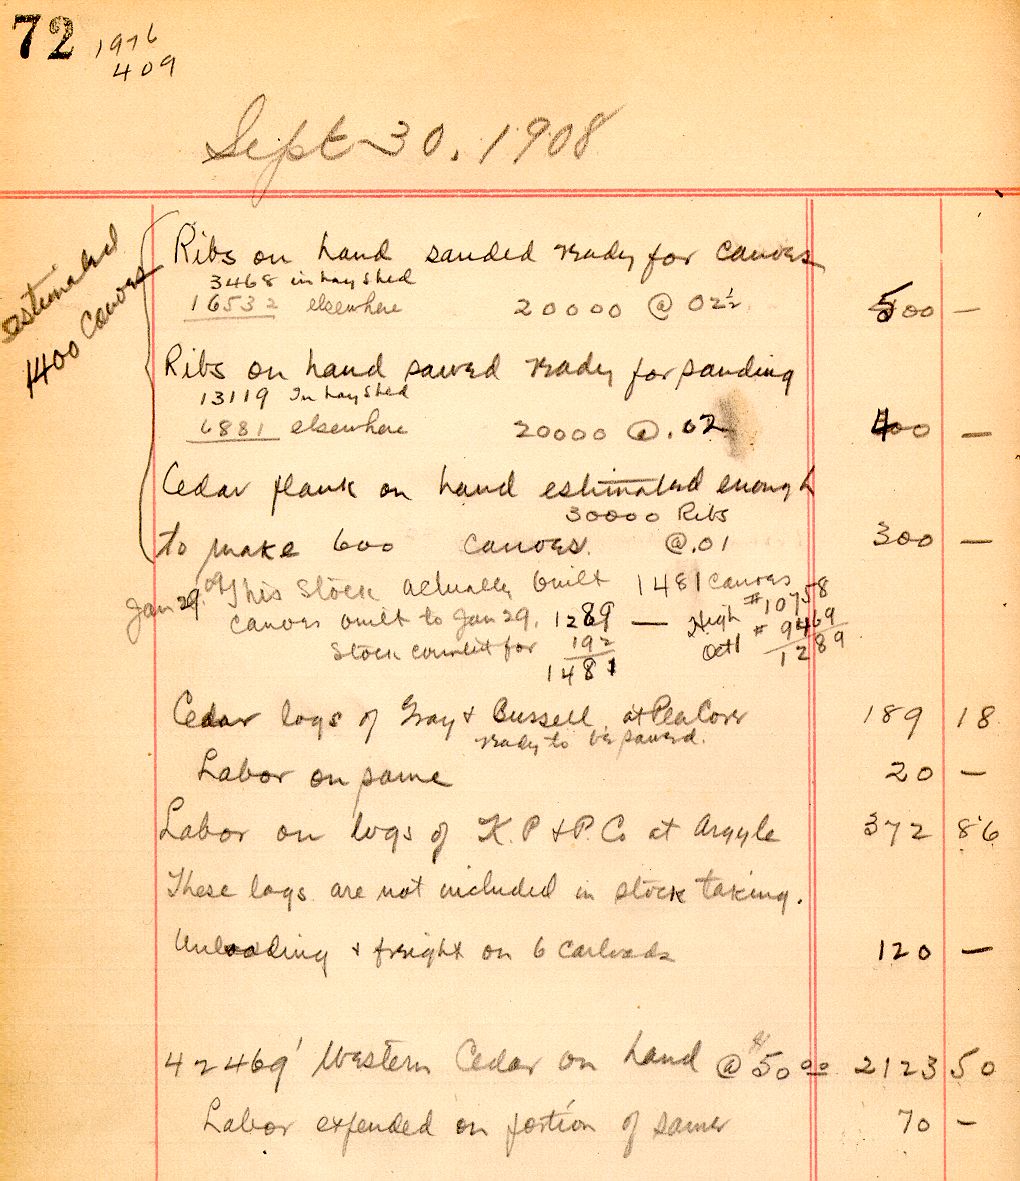 72
1976
409
Sept 30, 1908
estimated
1400 canoes
Ribs on hand sanded ready for canoes
3468 in hay shed
16532 elsewhere 20000 @ 02½ 500 —
Ribs on hand sawed ready for sanding
13119 In hay shed
6881 elsewhere 20000 @ .02 400 —
Cedar plank on hand estimated enough
30000 Ribs
to make 600 canoes. @.01 300 —
Jan 29. 09 This stock actually built 1481 canoes
canoes built to Jan 29. 1289 — High #10758
Stock countit for 192 Oct 1 # 9469
1481 1289
Cedar logs of Gray & Bussell at Pea Cove 189 18
ready to be sawed.
Labor on same 20 —
Labor on logs of K. P & P. Co at Argyle 372 86
These logs are not included in stock taking.
Unloading & freight on 6 carloads 120 —
42469' Western Cedar on hand @ $50 00 2123 50
Labor expended on portion of same 70 —